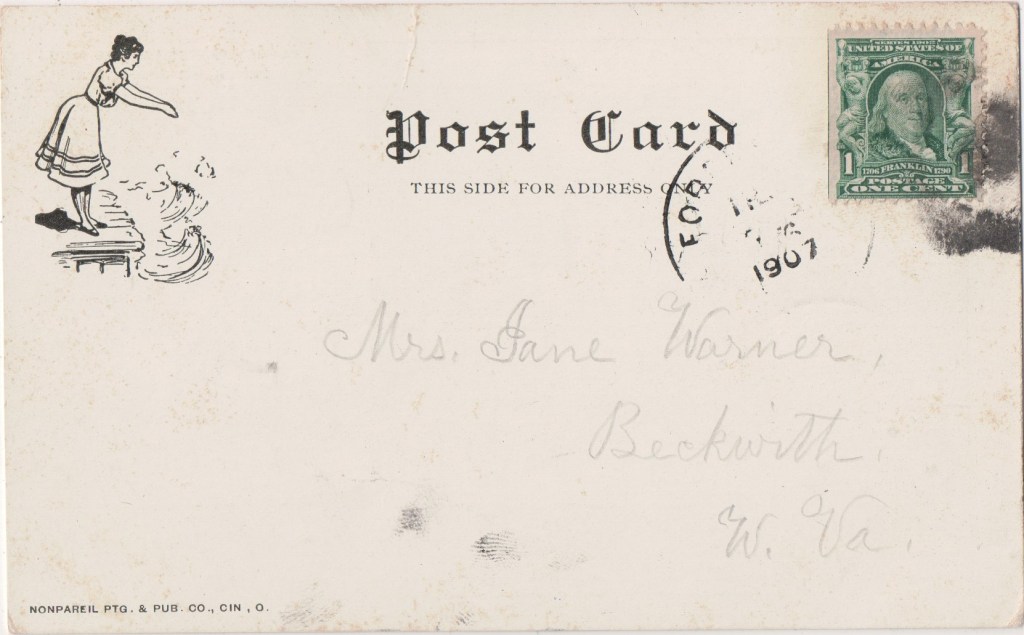 SERIES 1902
UNITED STATES OF
AMERICA
1 1706 FRANKLIN 1790 1
POSTAGE
ONE CENT
Post Card
THIS SIDE FOR ADDRESS ONLY
FOR
1907
Mrs. Jane Warner,
Beckwith.
W. Va.
NONPAREIL PTG. & PUB. CO., CIN , O.